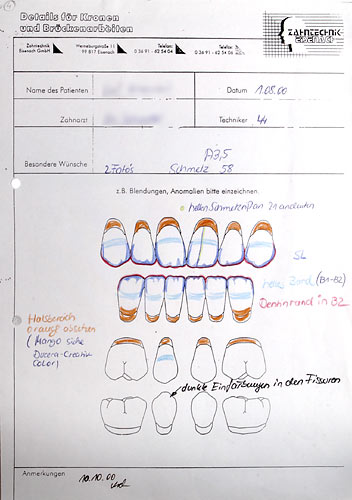 Details für Kronen
und Brückenarbeiten
ZAHNTECHNIK
EISENACH
Zahntechnik
Eisenach GmbH
Werneburgstraße 11
99 817 Eisenach
Telefon:
0 36 91 - 62 54 04
Telefax:
0 36 91 - 62 54 06
Name des Patienten
Datum 1.08.00
Zahnarzt
Techniker
Besondere Wünsche
A3,5
2 Fotos Schmelz 58
z.B. Blendungen, Anomalien bitte einzeichnen.
hellen Schmelzriß an 21 andeuten
SL
helles Band (B1-B2)
Dentinrand in B2
Halsbereich
orange absetzen
(Mango siehe
Ducera-Creativ
Color)
dunkle Einfärbungen in den Fissuren
Anmerkungen
10.10.00